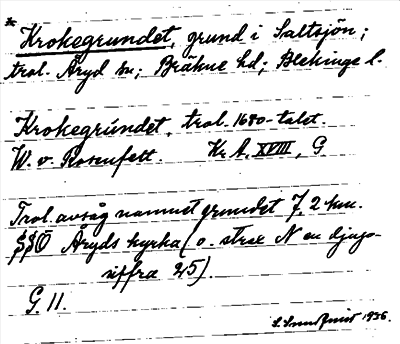 * Krokegrundet, grund i Saltsjön;
trol. Åryd sn; Bräkne hd; Blekinge l.
Krokegrúndet, trol. 1680-talet.
W. v. Rosenfelt. Kr A, XVIII, G
Trol. avsåg namnet grundet 7,2 km.
SSÖ Åryds kyrka (o. strax N en djup-
siffra 25).
G. 11.
S. Sundqvist 1936.